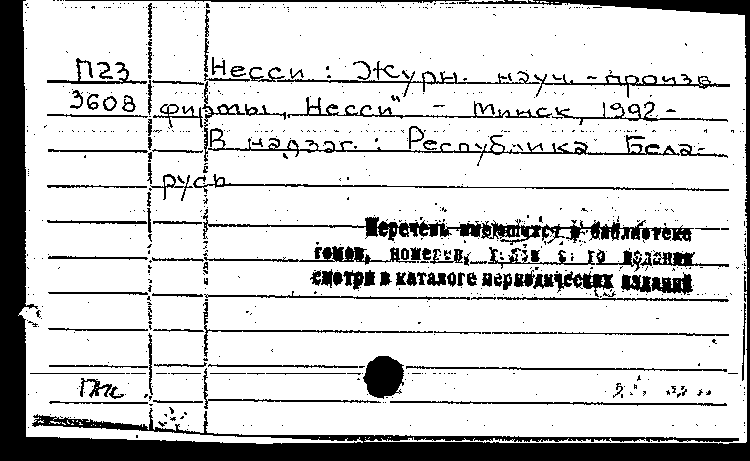 П23 Несси : Журн. науч. - произв.
3608 фирмы „Несси" - Минск, 1992 -
В надзаг. : Республика Бела-
русь
Перечень имеющихся в библиотеке
томов, номеров, издания
смотри в каталоге периодических изданий